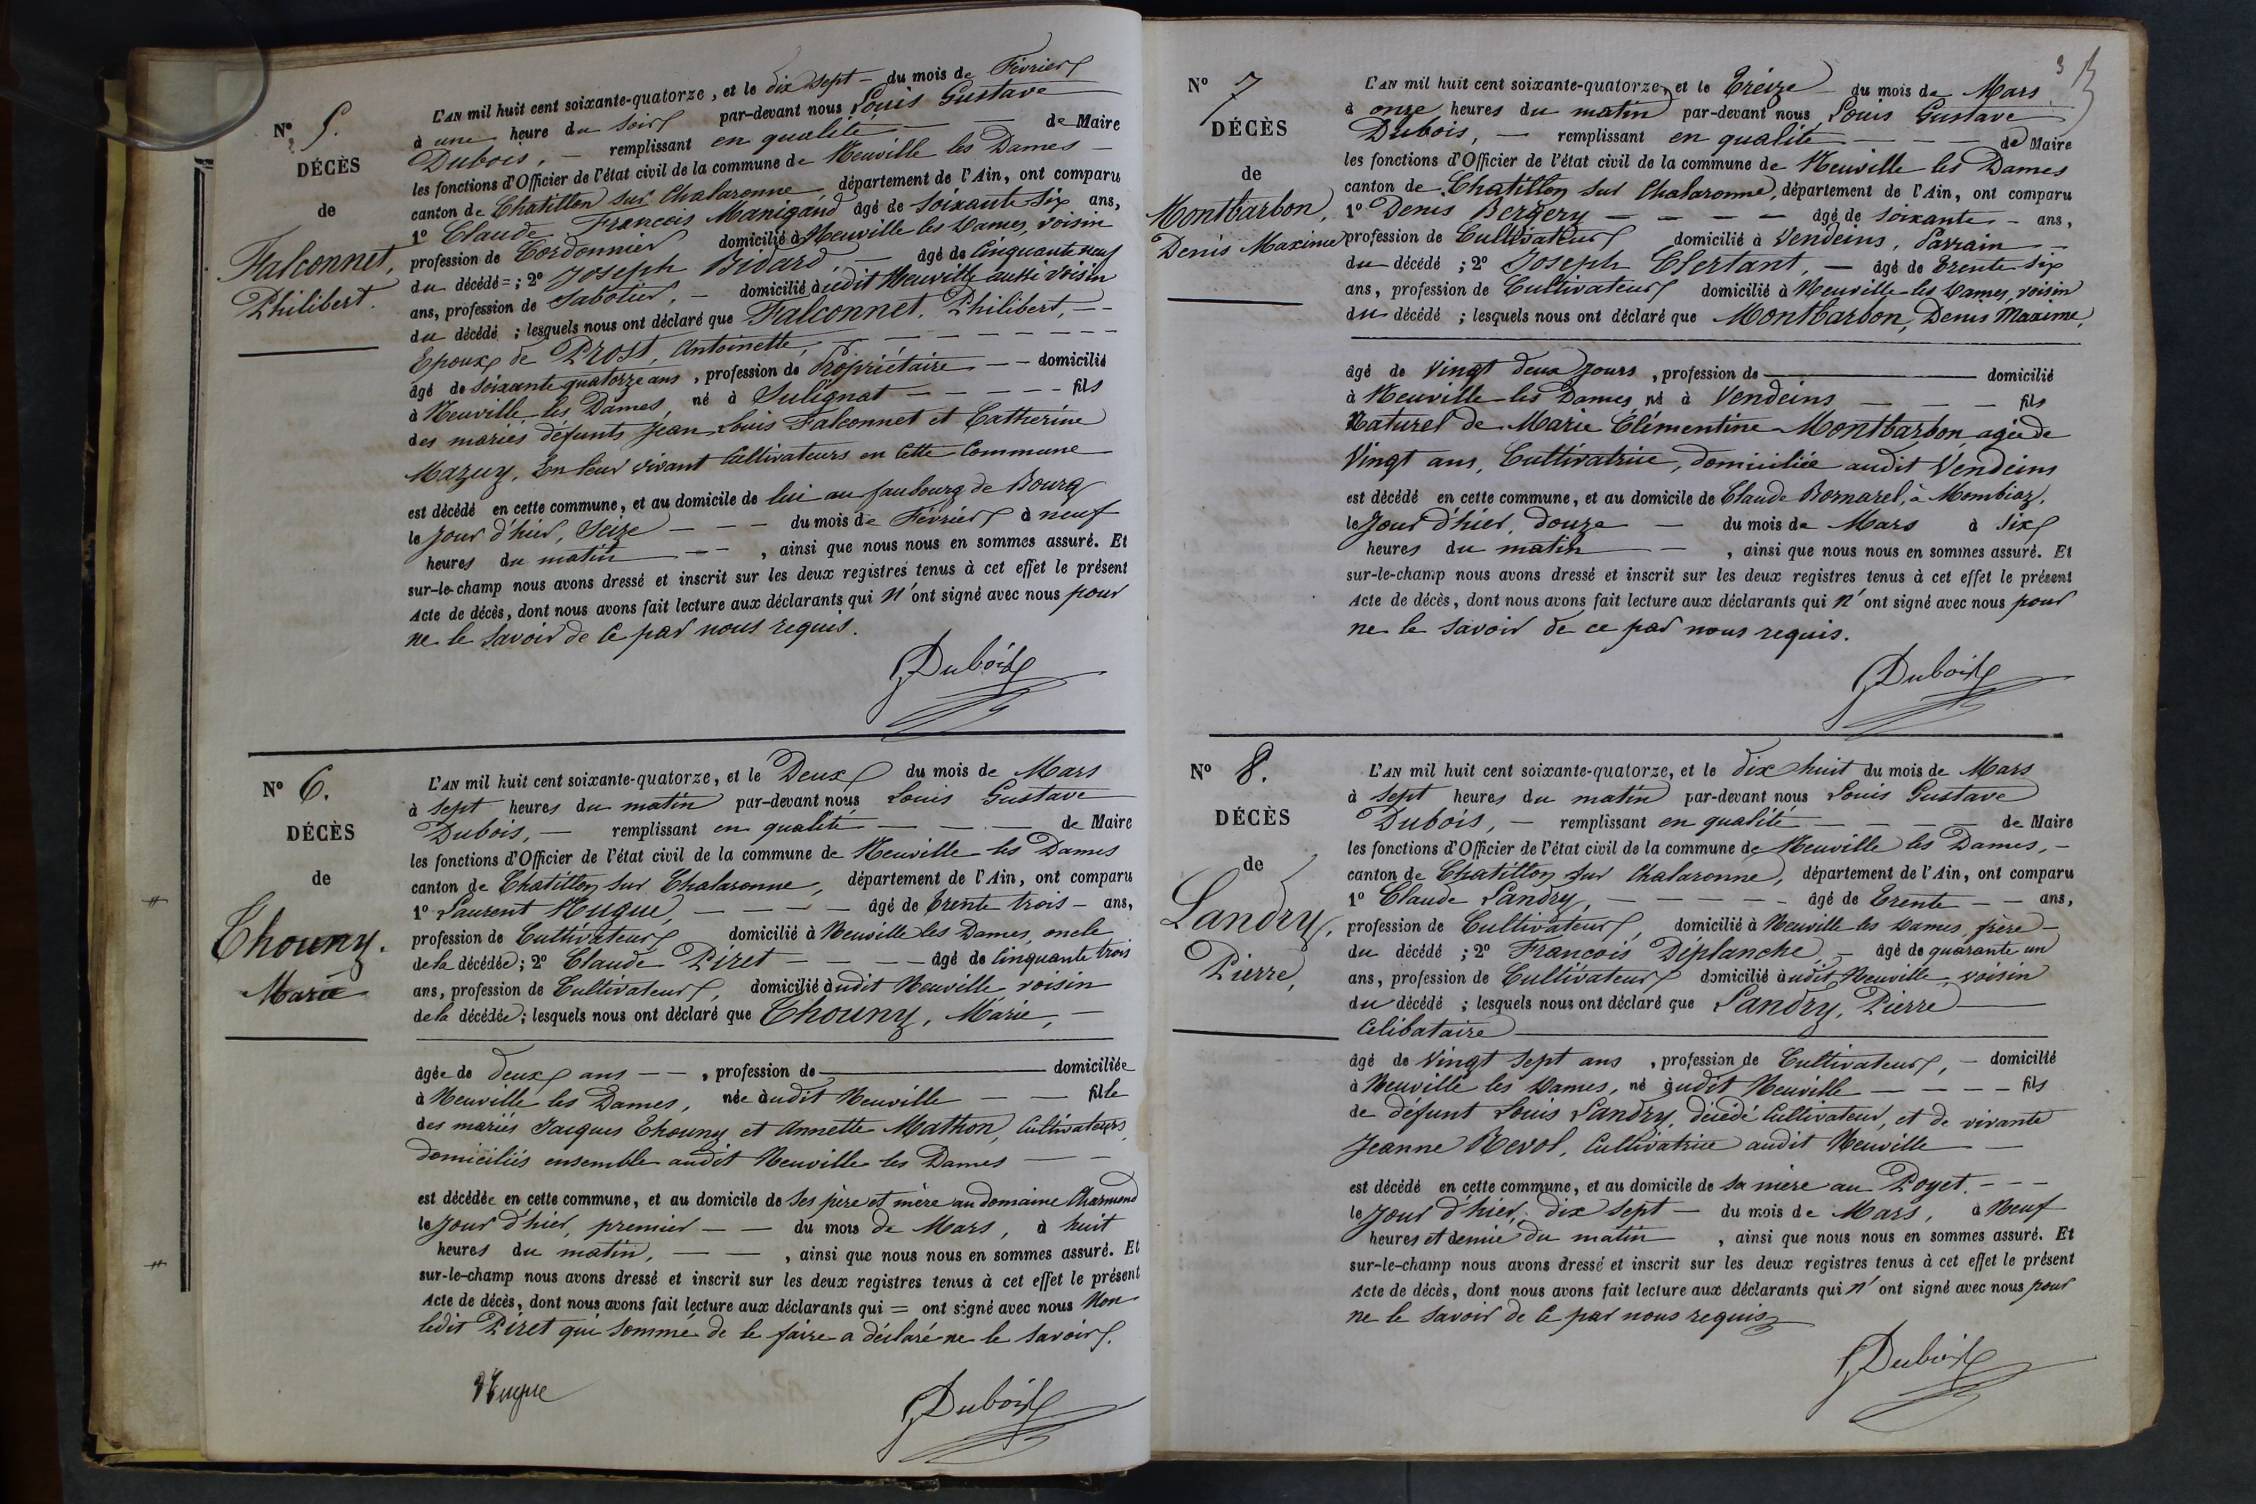 N° 5.
DÉCÈS
de
Falconnet,
Philibert.
L'AN mil huit cent soixante-quatorze, et le dix sept — du mois de Février
à une heure du soir par-devant nous Louis Gustave
Dubois, — remplissant en qualité — — de Maire
les fonctions d'Officier de l'état civil de la commune de Neuville les Dames —
canton de Chatillon sur Chalaronne, département de l'Ain, ont comparu
1° Claude François Manigand âgé de soixante six ans,
profession de Cordonnier domicilié à Neuville les Dames, voisin
du décédé = ; 2° Joseph Bidard, — âgé de Cinquante neuf
ans, profession de Sabotier, — domicilié à udit Neuville aussi voisin
du décédé ; lesquels nous ont déclaré que Falconnet, Philibert, — —
Epoux de Prost, Antoinette, — — — — — — —
âgé de soixante quatorze ans, profession de Propriétaire — — domicilié
à Neuville les Dames, né à Sulignat — — — — fils
des mariés défunts Jean Louis Falconnet et Catherine
Mazuy, En leur vivant Cultivateurs en Cette Commune
est décédé en cette commune, et au domicile de lui au faubourg de Bourg
le jour d'hier, Seize — — — du mois de Février à neuf
heures du matin — — , ainsi que nous nous en sommes assuré. Et
sur-le-champ nous avons dressé et inscrit sur les deux registres tenus à cet effet le présent
Acte de décès, dont nous avons fait lecture aux déclarants qui n'ont signé avec nous pour
ne le savoir de ce par nous requis.
Dubois
N° 6.
DÉCÈS
de
Thouny.
Marie
L'AN mil huit cent soixante-quatorze, et le Deux du mois de Mars
à sept heures du matin par-devant nous Louis Gustave
Dubois, — remplissant en qualité — — — de Maire
les fonctions d'Officier de l'état civil de la commune de Neuville les Dames
canton de Chatillon sur Chalaronne, département de l'Ain, ont comparu
1° Laurent Hugue, — — — — âgé de trente trois — ans,
profession de Cultivateur, domicilié à Neuville les Dames, oncle
de la décédée ; 2° Claude Piret — — — — âgé de Cinquante trois
ans, profession de Cultivateur, domicilié àudit Neuville voisin
de la décédée ; lesquels nous ont déclaré que Thouny, Marie, —
âgée de deux ans — — , profession de — domiciliée
à Neuville les Dames, née àudit Neuville — — fille
des mariés Jacques Thouny et Annette Mathon, Cultivateurs,
domiciliés ensemble audit Neuville les Dames — —
est décédée en cette commune, et au domicile de ses père et mère au domaine Charmond
le jour d'hier, premier — — du mois de Mars, à huit
heures du matin, — — , ainsi que nous nous en sommes assuré. Et
sur-le-champ nous avons dressé et inscrit sur les deux registres tenus à cet effet le présent
Acte de décès, dont nous avons fait lecture aux déclarants qui = ont signé avec nous Non
ledit Piret qui sommé de le faire a déclaré ne le savoir.
Hugue
Dubois
3
N° 7
DÉCÈS
de
Montbarbon,
Denis Maxime
L'AN mil huit cent soixante-quatorze, et le Treize — du mois de Mars
à onze heures du matin par-devant nous Louis Gustave
Dubois, — remplissant en qualité — — — de Maire
les fonctions d'Officier de l'état civil de la commune de Neuville les Dames
canton de Chatillon sur Chalaronne, département de l'Ain, ont comparu
1° Denis Bergery — — — — âgé de soixante — ans,
profession de Cultivateur domicilié à Vendeins, Parrain —
du décédé ; 2° Joseph Clertant, — âgé de Trente six
ans, profession de Cultivateur domicilié à Neuville les Dames, voisin
du décédé ; lesquels nous ont déclaré que Montbarbon, Denis Maxime,
âgé de Vingt deux jours, profession de — domicilié
à Neuville les Dames né à Vendeins — — — fils
Naturel de Marie Clémentine Montbarbon agée de
Vingt ans, Cultivatrice, domiciliée audit Vendeins
est décédé en cette commune, et au domicile de Claude Bornarel, à Mombiaz,
le jour d'hier, douze — du mois de Mars à six
heures du matin — — , ainsi que nous nous en sommes assuré. Et
sur-le-champ nous avons dressé et inscrit sur les deux registres tenus à cet effet le présent
Acte de décès, dont nous avons fait lecture aux déclarants qui n'ont signé avec nous pour
ne le savoir de ce par nous requis.
Dubois
N° 8.
DÉCÈS
de
Landry,
Pierre,
L'AN mil huit cent soixante-quatorze, et le dix huit du mois de Mars
à sept heures du matin par-devant nous Louis Gustave
Dubois, — remplissant en qualité — — — — de Maire
les fonctions d'Officier de l'état civil de la commune de Neuville les Dames, —
canton de Chatillon sur Chalaronne, département de l'Ain, ont comparu
1° Claude Landry, — — — — — âgé de Trente — — ans,
profession de Cultivateur, domicilié à Neuville les Dames, frère —
du décédé ; 2° François Déplanche, — âgé de quarante un
ans, profession de Cultivateur domicilié àudit Neuville, voisin
du décédé ; lesquels nous ont déclaré que Landry, Pierre —
Célibataire —
âgé de Vingt sept ans, profession de Cultivateur, — domicilié
à Neuville les Dames, né àudit Neuville — — — — fils
de défunt Louis Landry, décédé Cultivateur, et de vivante
Jeanne Revol, Cultivatrice audit Neuville — —
est décédé en cette commune, et au domicile de sa mère au Poyet. — — —
le jour d'hier, dix sept — du mois de Mars, à Neuf
heures et demie du matin , ainsi que nous nous en sommes assuré. Et
sur-le-champ nous avons dressé et inscrit sur les deux registres tenus à cet effet le présent
Acte de décès, dont nous avons fait lecture aux déclarants qui n'ont signé avec nous pour
ne le savoir de ce par nous requis
Dubois